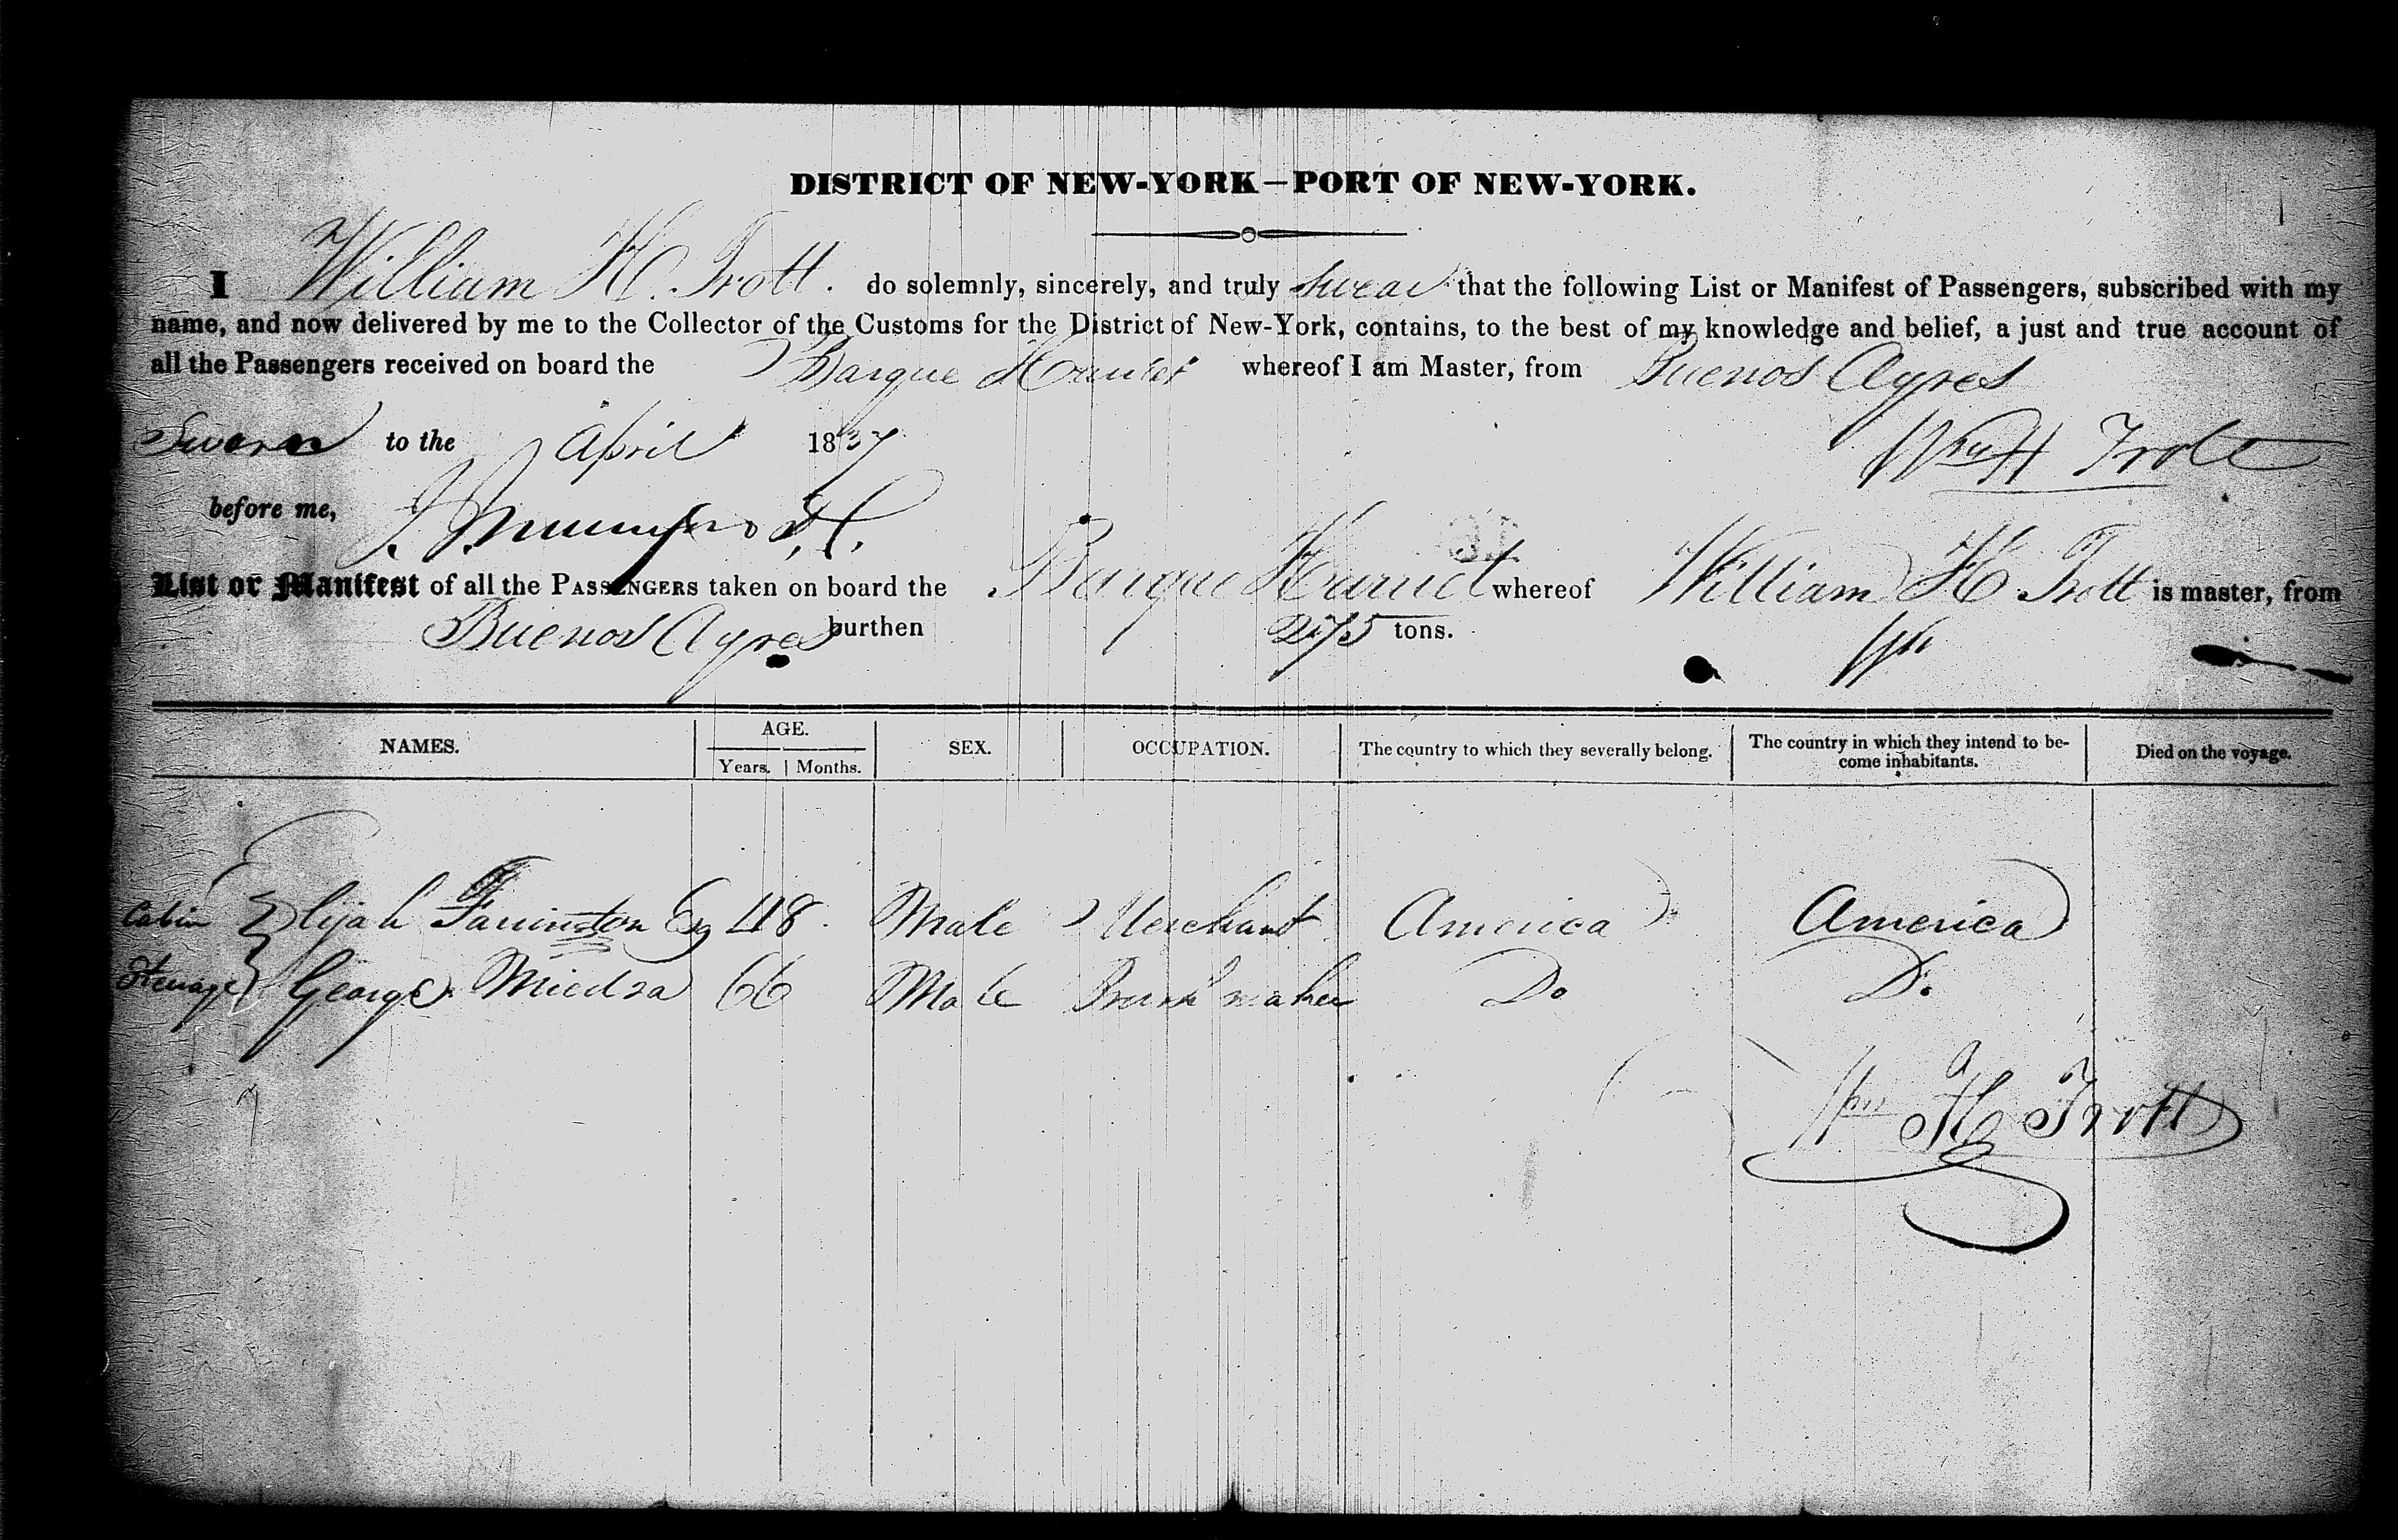 DISTRICT OF NEW-YORK—PORT OF NEW-YORK.
I William H. Trott. do solemnly, sincerely, and truly swear that the following List or Manifest of Passengers, subscribed with my
name, and now delivered by me to the Collector of the Customs for the District of New-York, contains, to the best of my knowledge and belief, a just and true account of
all the Passengers received on board the Barque whereof I am Master, from Buenos Ayres
Sworn to the April 1837 Wm H Trott
before me,
List or Manifest of all the PASSENGERS taken on board the Barque whereof William H. Trott is master, from
Buenos Ayres burthen 275 tons.
NAMES. AGE. SEX. OCCUPATION. The country to which they severally belong. The country in which they intend to be-
come inhabitants. Died on the voyage.
Years. Months.
Cabin Elijah Farrington Esq 48. Male Merchant America America
Steerage George 66 Male maker Do Do
Wm H Trott